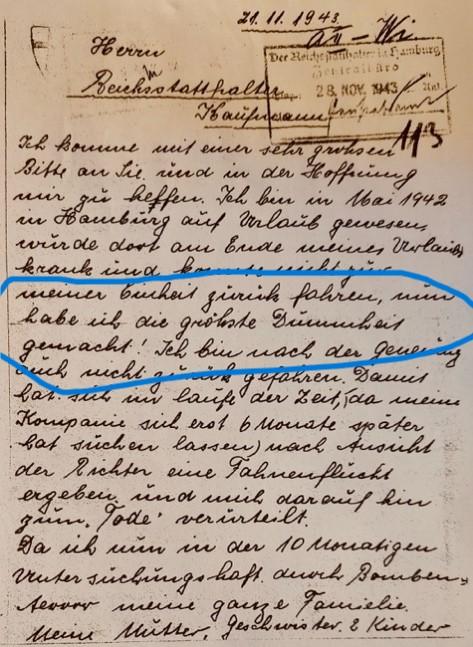 21.11.1943.
Herrn
Reichsstatthalter
Kaufmann
Der Reichsstatthalter in Hamburg
Zentralbüro
28. NOV. 1943
113
Ich komme mit einer sehr großsen
Bitte an Sie und in der Hoffnung
mir zu helfen. Ich bin in Mai 1942
in Hamburg auf Urlaub gewesen,
würde dort am Ende meines Urlaubs
krank und konnte nicht zu
meiner Einheit zurück fahren, nun
habe ich die größste Dummheit
gemacht! Ich bin nach der Genesung
auch nicht zurück gefahren. Damit
hat sich im laufe der Zeit, (da meine
Kompanie sich erst 6 Monate später
hat suchen lassen) nach Ansicht
der Richter eine Fahnenflucht
ergeben und mich darauf hin
zum "Tode" verurteilt.
Da ich nun in der 10 Monatigen
Untersuchungshaft durch Bomben-
terror meine ganze Familie.
Meine Mutter, Geschwister. 2 Kinder